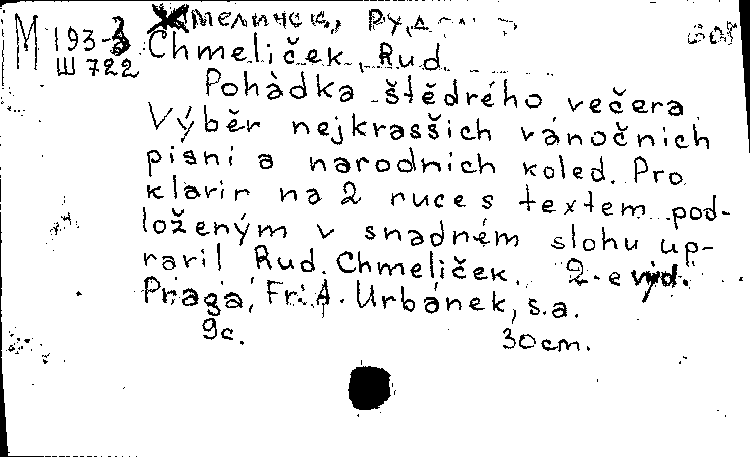 Хмеличек, Руд
М 193-3
Ш 722
Chmeliček, Rud.
Pohàdka štědrého večera
Výběr nejkrasšich vánočnich
pisni a narodnich koled. Pro
klavir na 2 ruce s textem pod-
loženým v snadném slohu up-
ravil Rud. Chmeliček. 2-e výd.
Praga, Fr. A. Urbánek, s.a.
9c. 30cm.